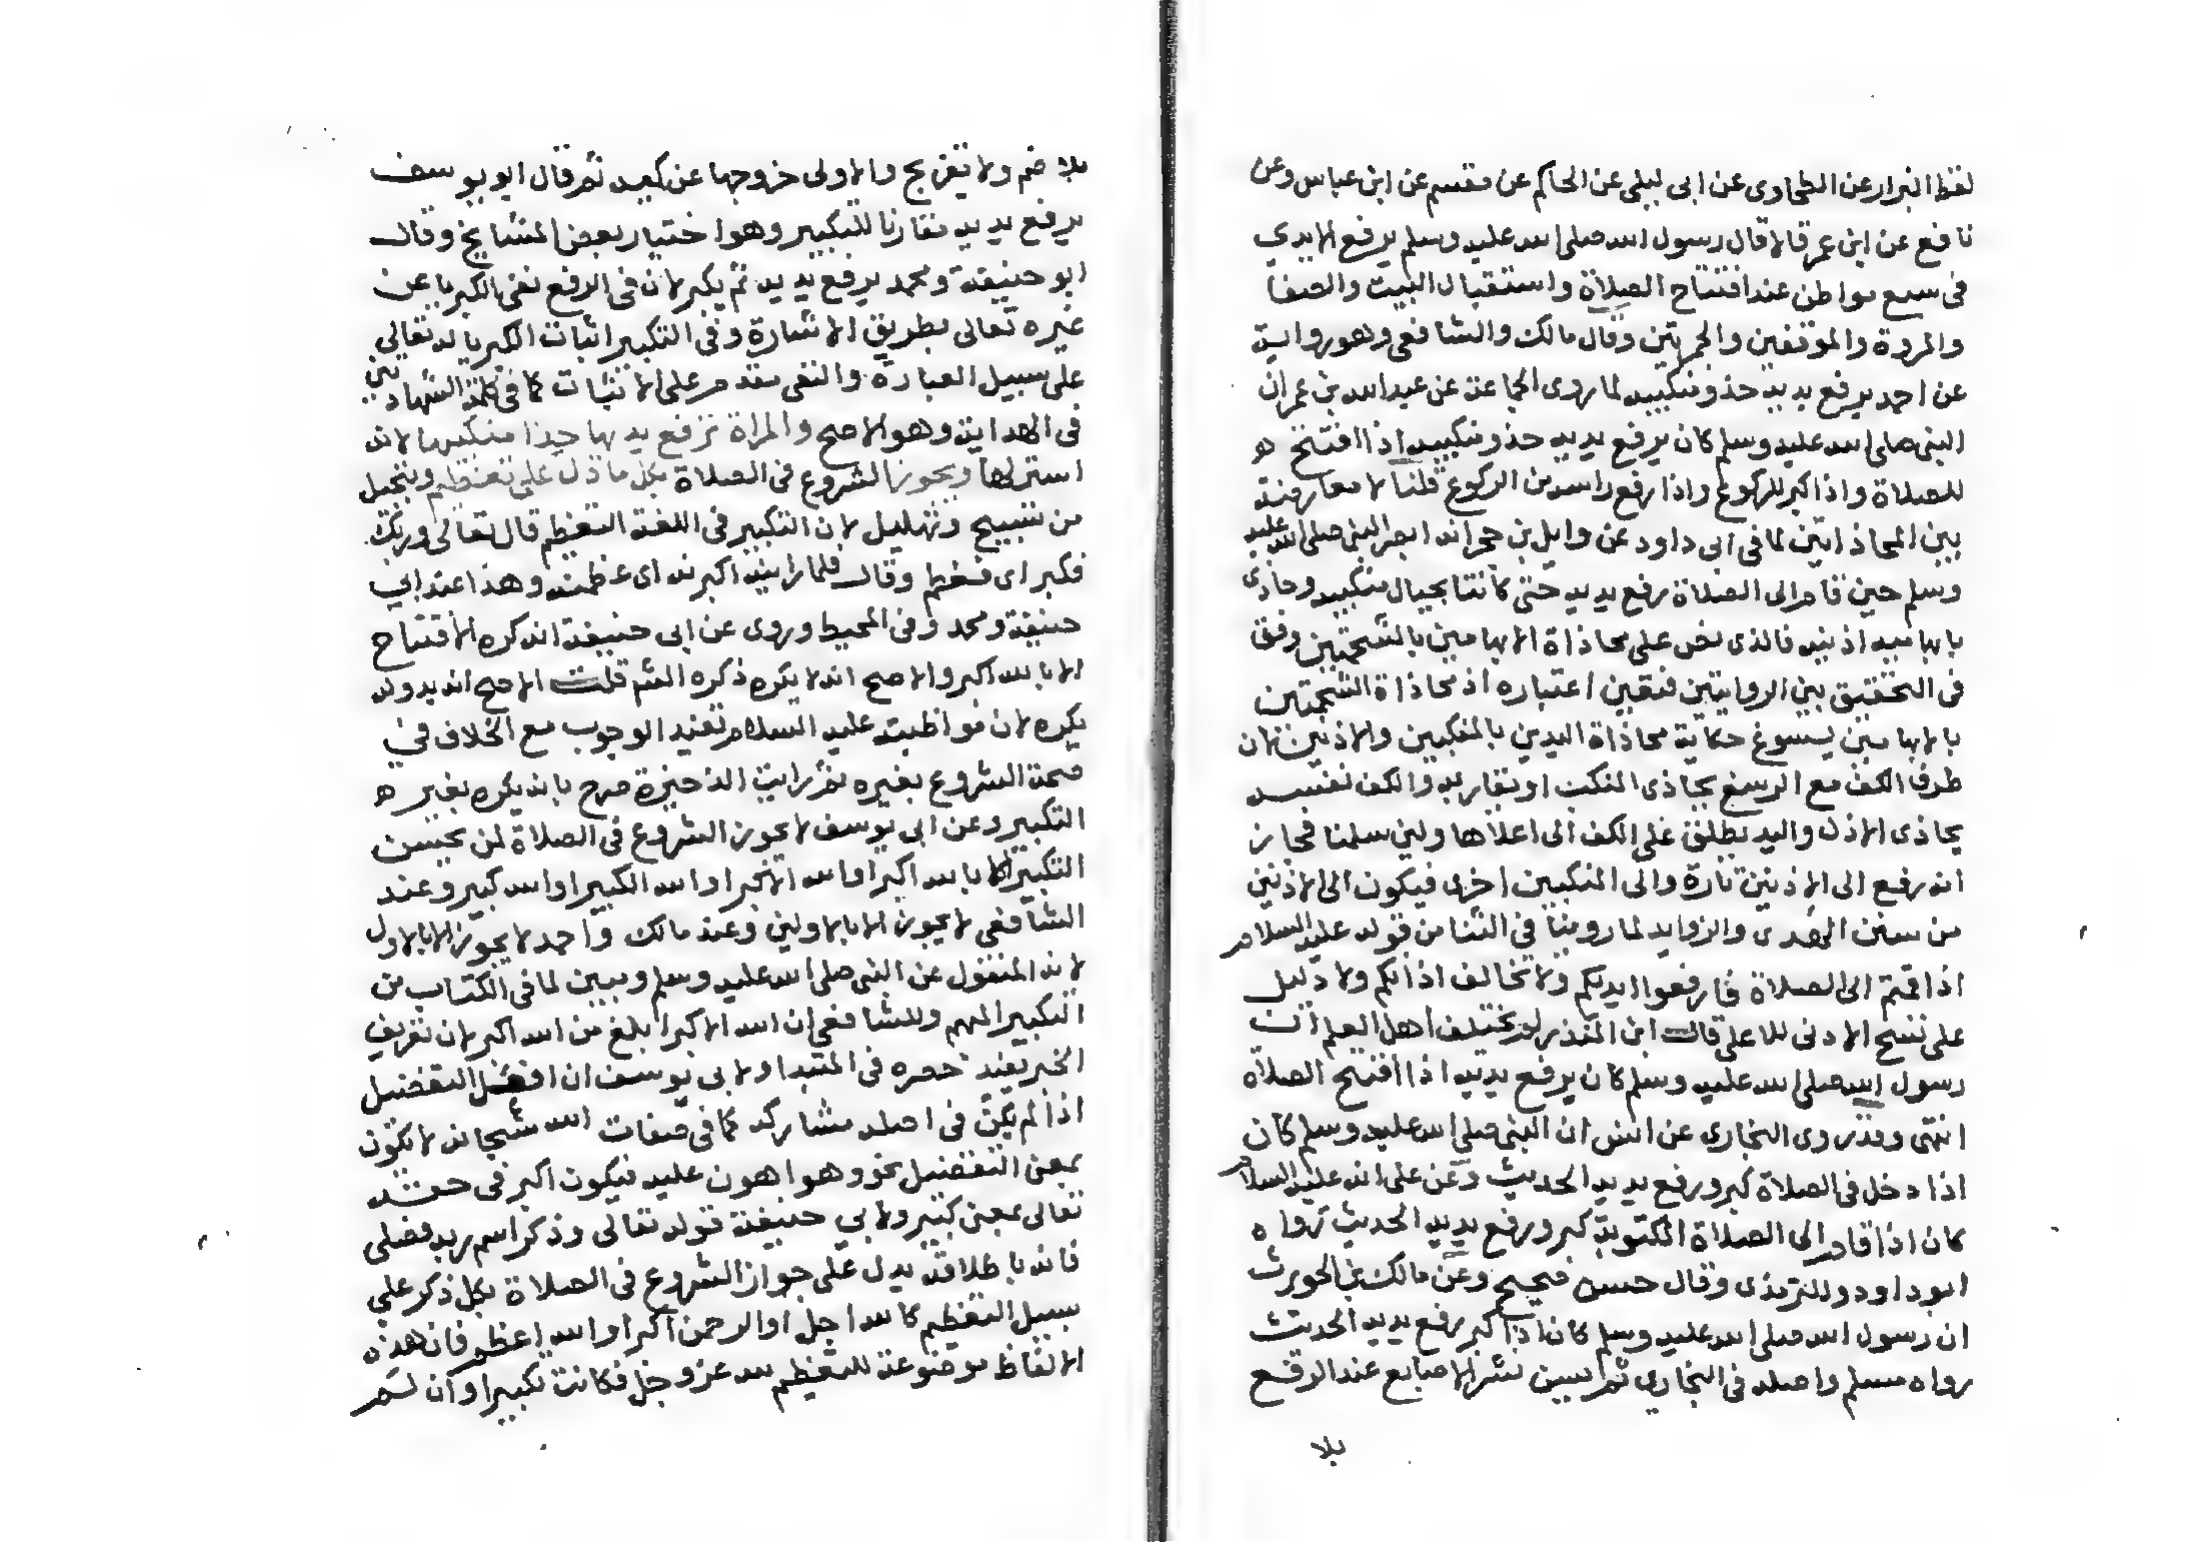 لفظ البزار عن الطحاوى عن ابى ليلى عن الحاكم عن مقسم عن ابن عباس وعن
نافع عن ابن عمر قالا قال رسول الله صلى الله عليه وسلم يرفع الايدي
فى سبع مواطن عند افتتاح الصلاة واستقبال البيت والصفا
والمروة والموقفين والجمرتين وقال مالك والشافعى وهو رواية
عن احمد يرفع يديه حذو منكبيه لما روى الجماعة عن عبد الله بن عمر ان
النبى صلى الله عليه وسلم كان يرفع يديه حذو منكبيه اذا افتتح ه
للصلاة واذا كبر للركوع واذا رفع راسه من الركوع قلنا لا معارضة
بين المحاذاتين لما فى ابى داود عن وايل بن حجر انه ابصر النبى صلى الله عليه
وسلم حين قام الى الصلاة رفع يديه حتى كانتا بحيال منكبيه وحاذى
بابهاميه اذنيه فالذى نص على محاذاة الابهامين بالشحمتين وفق
فى التحقيق بين الروايتين فتعين اعتباره اذ محاذاة الشحمتين
بالابهامين يسوغ حكاية محاذاة اليدين بالمنكبين والاذنين لان
طرف الكف مع الرسغ يحاذى المنكب او يقاربه والكف نفسه
يحاذى الاذن واليد يطلق على الكف الى اعلاها ولين سلمنا فجاز
انه رفع الى الاذنين تارة والى المنكبين اخرى فيكون الى الاذنين
من سنن الهدى والزوايد لما روينا فى الثنا من قوله عليه السلام
اذا قمتم الى الصلاة فارفعوا ايديكم ولا تخالف اذانكم ولا دليل
على نسخ الادنى للاعلى قال ابن المنذر لم يختلف اهل العلم ان
رسول الله صلى الله عليه وسلم كان يرفع يديه اذا افتتح الصلاة
انتهى وقد روى البخارى عن انس ان النبى صلى الله عليه وسلم كان
اذا دخل فى الصلاة كبر ورفع يديه الحديث وعن على انه عليه السلام
كان اذا قام الى الصلاة المكتوبة كبر ورفع يديه الحديث رواه
ابو داود والترمذى وقال حسن صحيح وعن مالك بن الحويرث
ان رسول الله صلى الله عليه وسلم كان اذا كبر رفع يديه الحديث
رواه مسلم واصله فى البخارى ثم يسن نشر الاصابع عند الرفع
بلا
بلا ضم ولا تفريج والاولى خروجها عن كميه ثم قال ابو يوسف
يرفع يديه مقارنا للتكبير وهو اختيار بعض المشايخ وقال
ابو حنيفة ومحمد يرفع يديه ثم يكبر لان فى الرفع نفى الكبريا عن
غيره تعالى بطريق الاشارة وفى التكبير اثبات الكبريا له تعالى
على سبيل العبارة والنفى مقدم على الاثبات كما فى كلمة الشهادتين
فى الهداية وهو الاصح والمراة ترفع يديها حذا منكبيها لانه
استر لها ويجوز الشروع فى الصلاة بكل ما دل على تعظيم وتبجيل
من تسبيح وتهليل لان التكبير فى اللغة التعظيم قال تعالى وربك
فكبر اى فعظم وقال فلما راينه اكبرنه اى عظمنه وهذا عند ابي
حنيفة ومحمد وفى المحيط وروى عن ابى حنيفة انه كره الافتتاح
الا بالله اكبر والاصح انه لا يكره ذكره الشم قلت الاصح انه بدونه
يكره لان مواظبته عليه السلام تفيد الوجوب مع الخلاف فى
صحة الشروع بغيره ثم رايت الذخيرة صرح بانه يكره بغير ه
التكبير وعن ابى يوسف لا يجوز الشروع فى الصلاة لمن يحسن
التكبير الا بالله اكبر او الله الاكبر او الله الكبير او الله كبير وعند
الشافعى لا يجوز الا بالاولين وعند مالك واحمد لا يجوز الا بالاول
لانه المنقول عن النبى صلى الله عليه وسلم ومبين لما فى الكتاب من
التكبير المبهم وللشافعى ان الله الاكبر ابلغ من الله اكبر لان تعريف
الخبر يفيد حصره فى المبتدا ولابى يوسف ان افعل التفضيل
اذا لم يكن فى اصله مشاركة كما فى صفات الله سبحانه لا يكون
بمعنى التفضيل نحو وهو اهون عليه فيكون اكبر فى حقه
تعالى بمعنى كبير ولابي حنيفة قوله تعالى وذكر اسم ربه فصلى
فانه باطلاقه يدل على جواز الشروع فى الصلاة بكل ذكر على
سبيل التعظيم كالله اجل او الرحمن اكبر او الله اعظم فان هذه
الالفاظ موضوعة للتعظيم لله عز وجل فكانت تكبيرا وان لم